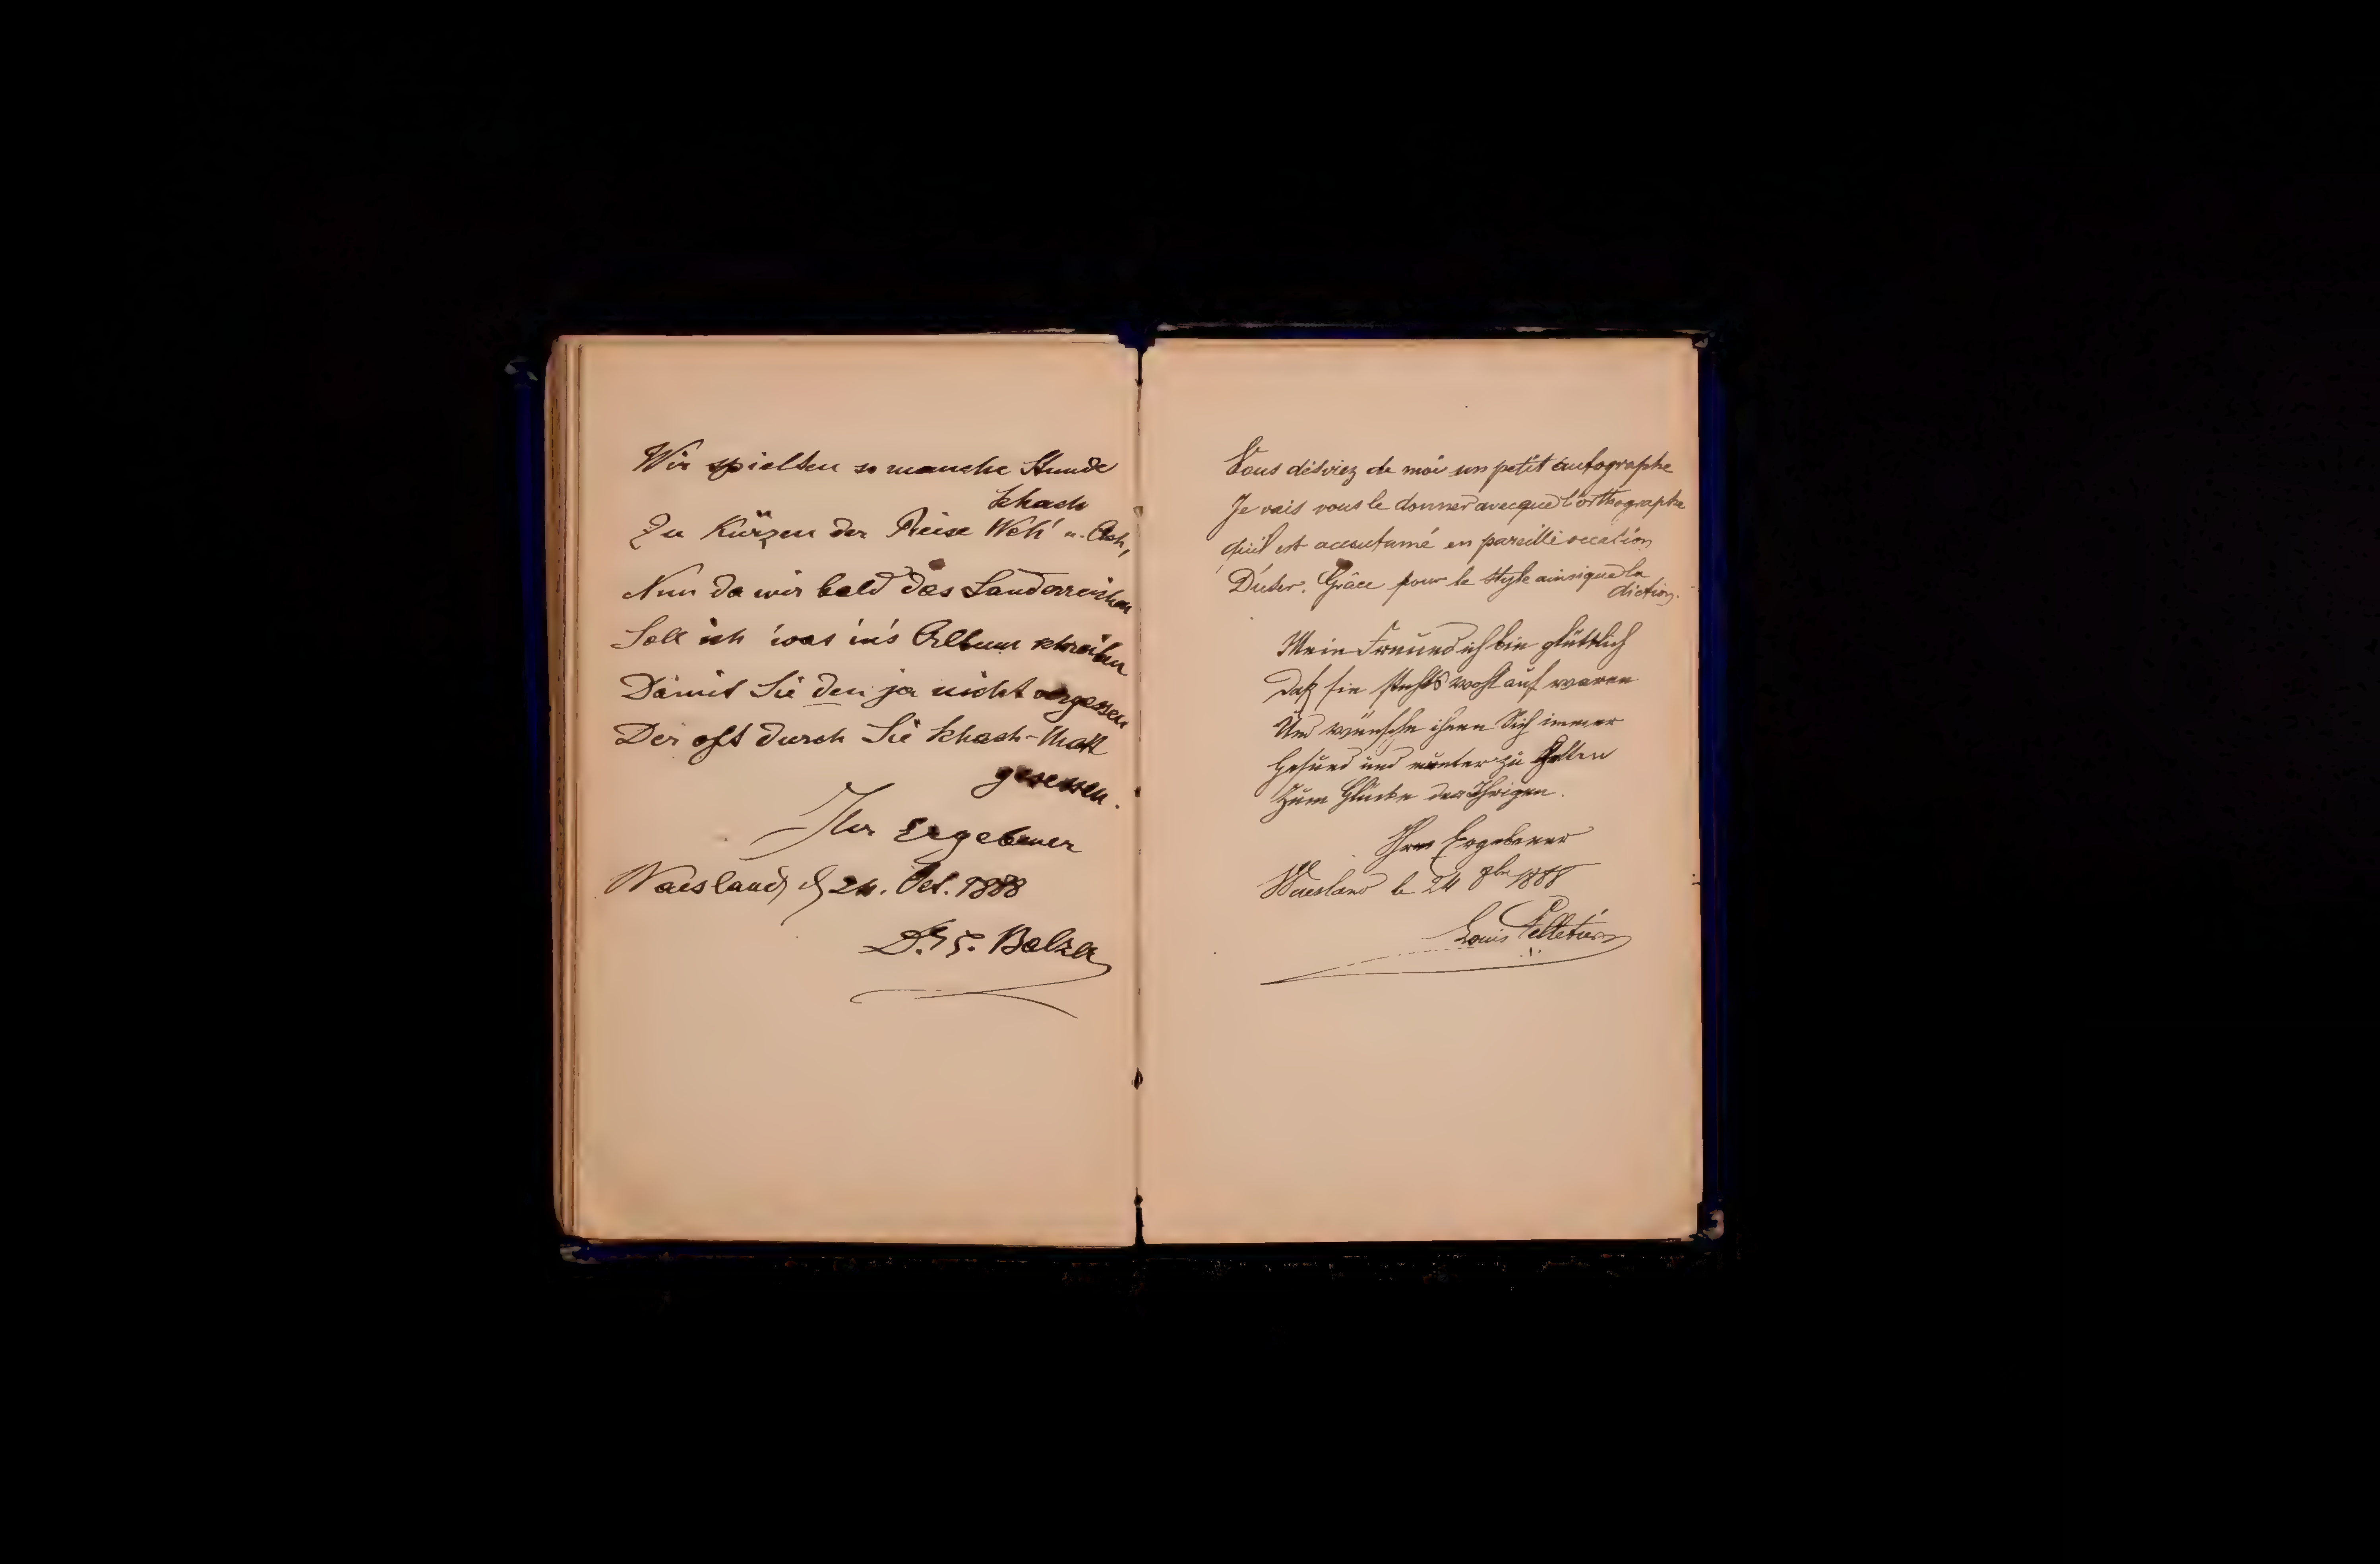 Wir spielten so manche Stunde
Schach
Zu Kürzen der Reise Weh' u. Ach,
Nun da wir bald das Land erreichen
Soll ich 'was in's Album schreiben
Damit Sie den ja nicht vergessen
Der oft durch Sie Schach-Matt
gesessen.
Ihr Ergebener
Waesland, d 24. Oct. 1888
Balzer
Vous désiriez de moi un petit autographe
Je vais vous le donner avecque l'orthographe
qu'il est accoutumé en pareille occation
D'uter. Grâce pour le style ainsi que la
diction.
Mein Freund ich bin glücklich
Daß sie stehts wohl auf waren
Und wünsche ihnen Sich immer
Gesund und munter zu halten
Zum Glücke der Ihrigen.
Ihr Ergebener
Waesland le 24 8bre 1888
Louis Pelletier